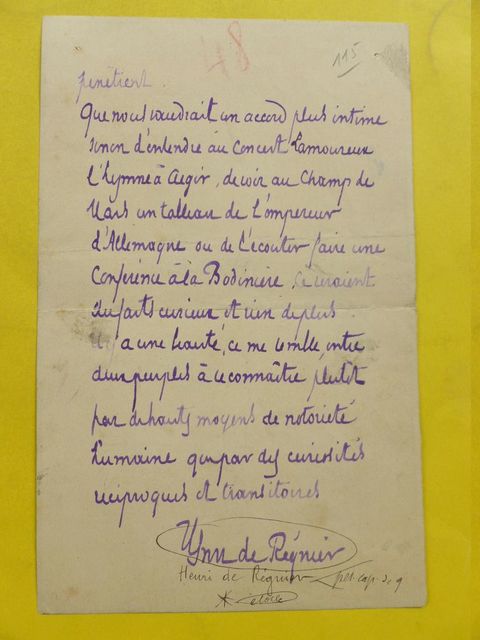 48
115
pénètrent.
Que nous vaudrait un accord plus intime
sinon d'entendre au Concert Lamoureux
l'Hymne à Aegir, de voir au Champ de
Mars un tableau de l'Empereur
d'Allemagne ou de l'écouter faire une
Conférence à la Bodinière, ce seraient
des faits curieux et rien de plus.
Il y a une beauté, ce me semble, entre
deux peuples à se connaître plutôt
par de hauts moyens de notoriété
humaine que par des curiosités
réciproques et transitoires
Henri de Régnier
Henri de Régnier pet. cap. du 9
* étoile